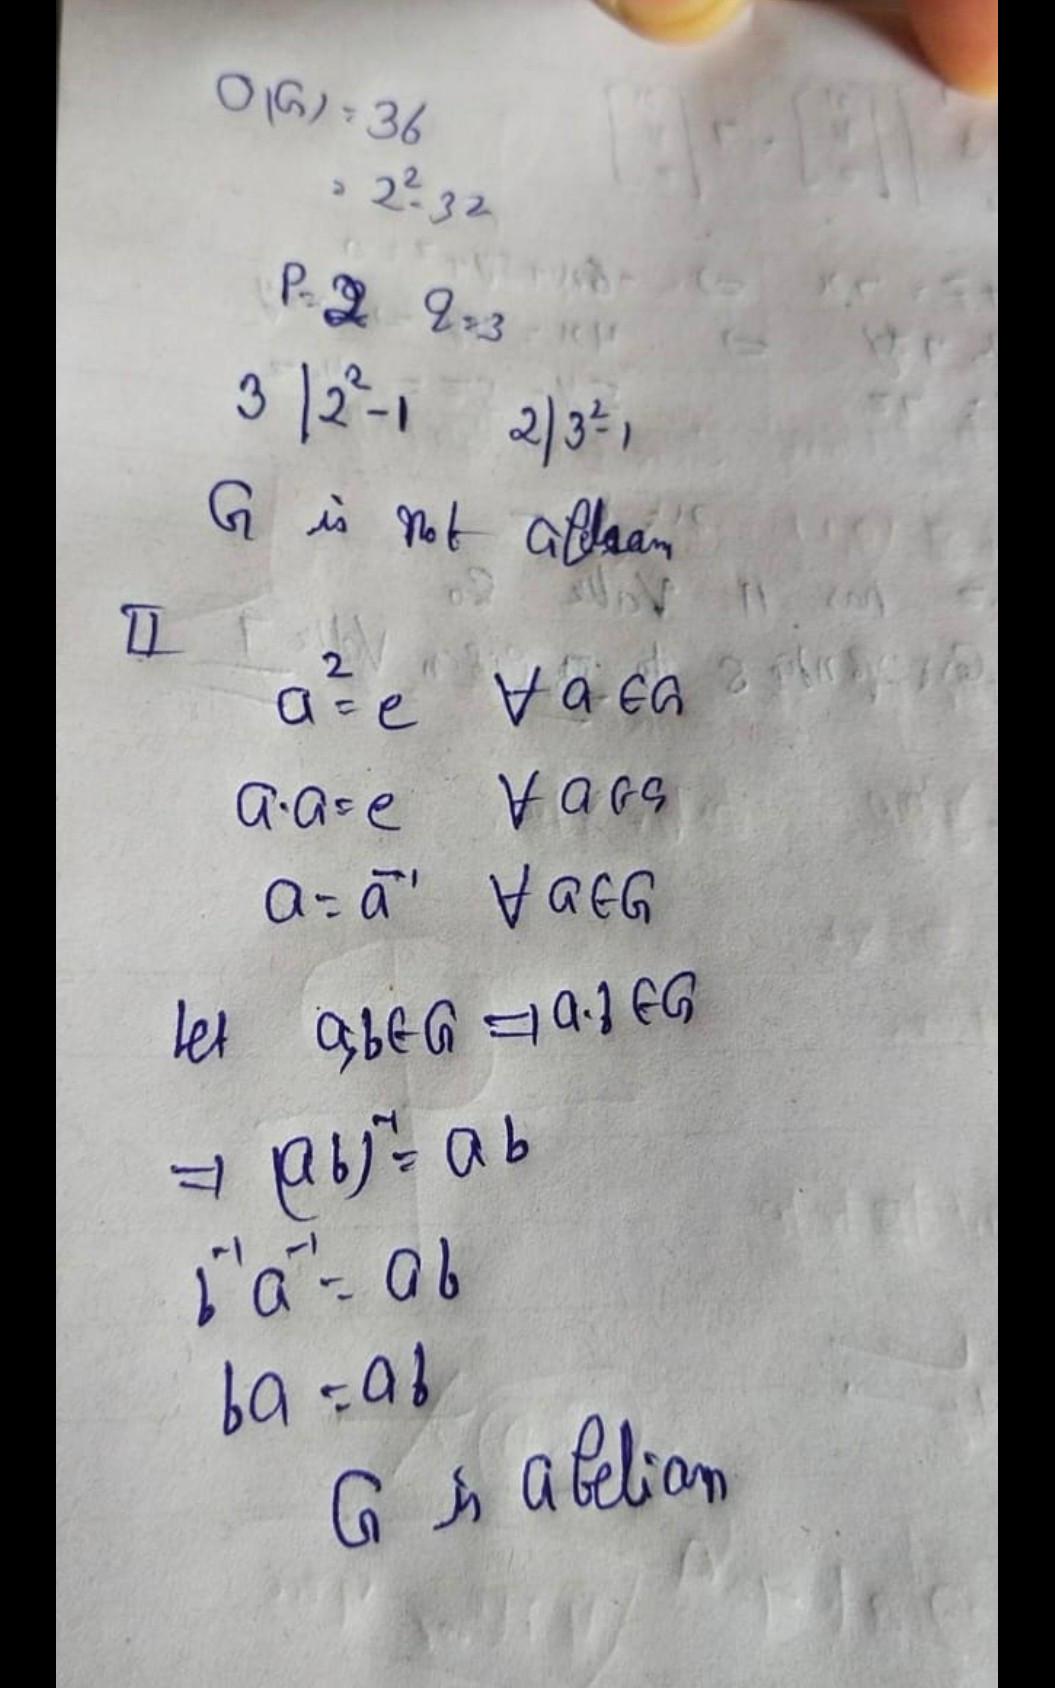 O(G) = 36
= 2².32
P=2 q=3
3 | 2²-1 2 | 3²-1
G is not abelian
II
a² = e ∀ a ∈ G
a·a = e ∀ a ∈ G
a = a⁻¹ ∀ a ∈ G
let a,b ∈ G ⇒ a.b ∈ G
⇒ (ab)⁻¹ = ab
b⁻¹ a⁻¹ = ab
ba = ab
G is abelian